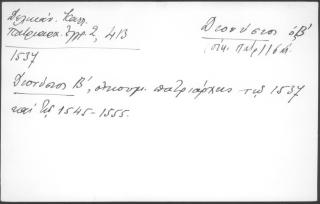 Δελικάν. Καλλ.
Πατριαρχ. Ἔγγρ. 2, 413
Διονύσιος ὁ Β΄
οἰκ. πατρ. 16 αἰ.
1537
Διονύσιος Β΄, οἰκουμ. πατριάρχης τῷ 1537
καί τῷ 1545-1555.